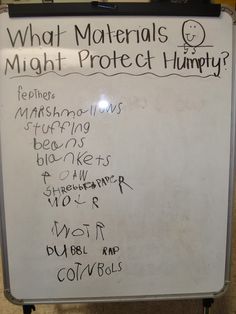 What Materials
Might Protect Humpty?
feathers
MARSHmallowS
stuffing
beans
blankets
SHREDDED PAPER
WOTR
BUBBL RAP
COTNBOLS